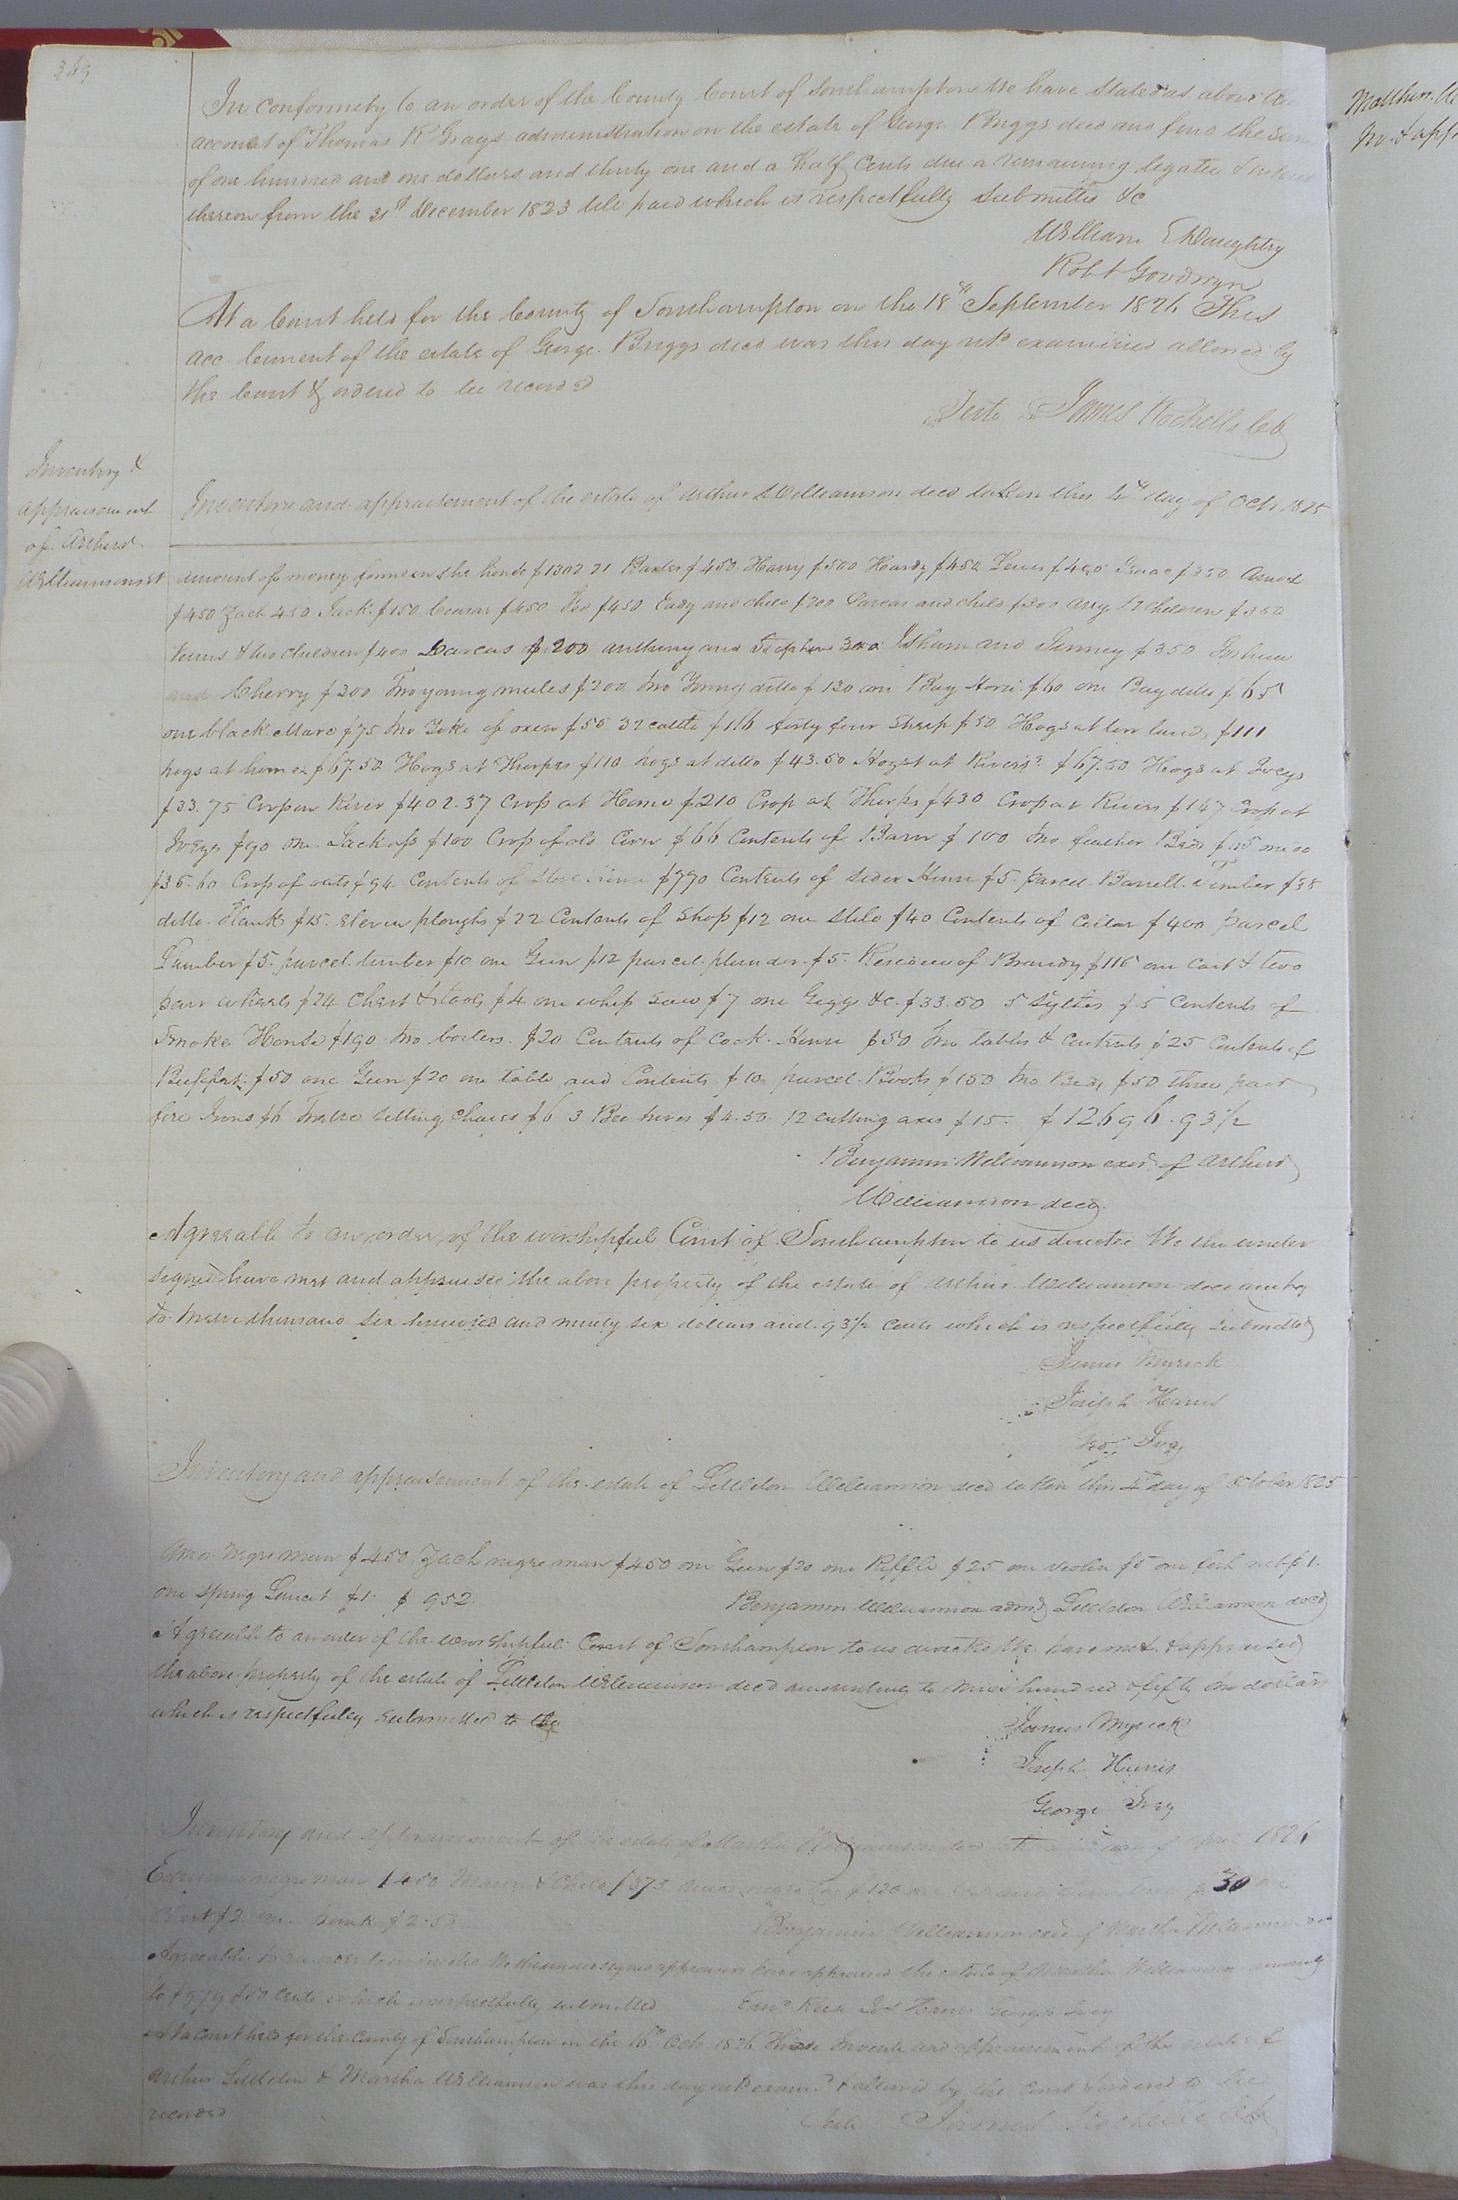 369
In conformity to an order of the County Court of Southampton We have Stated as above the
account of Thomas R Grays administration on the estate of George Briggs decd and find the Sum
of one hundred and one dollars and thirty one and a half Cents due a remaining legatee & interest
thereon from the 31st December 1823 till paid which is respectfully Submitted &c
William Daughtry
Robt Goodwyn
At a Court held for the County of Southampton on the 18th September 1826 This
acc current of the estate of George Briggs decd was this day retd examined allowed by
the Court & ordered to be recorded
Teste James Rochelle Clk
Inventory &
appraisement
of Arthur
Williamson est
Inventory and appraisement of the estate of Arthur Williamson decd taken this 4th day of Octr 1825
amount of money found on the hands $1302.21 Baxter $450 Harry $500 Hardy $450 Lewis $450 Isaac $350 Amos
$450 Zach 450 Jack $150 Ceasar $450 $450 Eady and child $300 Darcas and child $300 Amy & 2 Children $350
Venus & two children $400 Darcas $200 anthony and Stephen 300 Isham and Jinney $350 Joshua
and Cherry $300 Two young mules $200 two Young ditto $130 one Bay Horse $60 one Bay ditto $65
one black Mare $75 two Yoke of oxen $50 32 cattle $116 forty four Sheep $50 Hogs at low lands $111
hogs at home $67.50 Hogs at Thorps $110 hogs at ditto $43.50 Hogs at Rivers $67.50 Hogs at Iveys
$33.75 Crop on River $402.37 Crop at Home $210 Crop at Thorps $430 Crop at Rivers $147 Crop at
Iveys $90 one Jack ass $100 Crop of old Corn $66 Contents of Barn $100 two feather Beds $15
$36.60 Crop of oats $94 Contents of Store House $790 Contents of Sider House $5 parcel Barrell timber $38
ditto Plank $15 eleven ploughs $22 Contents of Shop $12 one Still $40 Contents of Cellar $400 parcel
Lumber $5 parcel timber $10 one Gun $12 parcel plunder $5 Residue of Brandy $116 one Cart & two
pair wheels $24 Chest & tools $4 one whip Saw $7 one Gigg &c $33.50 5 Sythes $5 Contents of
Smoke House $190 two boilers $20 Contents of Cook House $50 two tables & Contents $25 Contents of
Buffett $50 one Gun $20 one table and Contents $10 parcel Books $150 two Beds $50 three pair
fire Irons $6 Twelve Setting Chairs $6 3 Bee hives $4.50 12 cutting axes $15 $12696.93½
Benjamin Williamson exor of Arthur
Williamson decd
Agreeable to an order of the worshipful Court of Southampton to us directed We the under
signed have met and appraised the above property of the estate of Arthur Williamson decd amtng
to twelve thousand Six hundred and ninety six dollars and 93½ cents which is respectfully submitted
James Myrick
Joseph Harris
Geo Ivey
Inventory and appraisement of the estate of Littleton Williamson decd taken this 4th day of October 1825
Amos negro man $450 Zach negro man $450 one Gun $20 one Riffle $25 one violin $5 one fish net $1
one Spring Lancet $1 $952
Benjamin Williamson admr Littleton Williamson decd
Agreeable to an order of the worshipful Court of Southampton to us directed We have met & appraised
the above property of the estate of Littleton Williamson decd amounting to nine hundred & fifty two dollars
which is respectfully Submitted to the
James Myrick
Joseph Harris
George Ivey
Inventory and appraisement of the estate of Martha Williamson decd day of April 1826
negro man $450 & Child $375 $120 one $30 one
Chest $2 one trunk $2.50
Benjamin Williamson exor of Martha Williamson
Agreeable to an order to us directed We the undersigned appraisers have appraised the estate of Martha Williamson amountg
to $979 &50 Cents which is respectfully submitted Jos Harris George Ivey
At a court held for the County of Southampton on the 16th Octr 1826 These Inventy and appraisement of the estates of
Arthur Littleton & Martha Williamson was this day retd examd & allowed by the Court & ordered to be
recorded
Teste James Rochelle Clk
Matthew
to & app